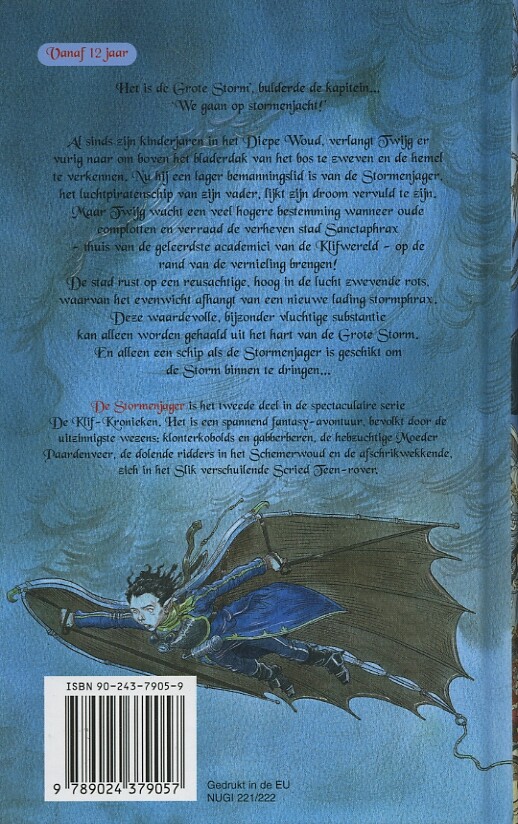 Vanaf 12 jaar
Het is de Grote Storm', bulderde de kapitein...
'We gaan op stormenjacht!'
Al sinds zijn kinderjaren in het Diepe Woud, verlangt Twijg er
vurig naar om boven het bladerdak van het bos te zweven en de hemel
te verkennen. Nu hij een lager bemanningslid is van de Stormenjager,
het luchtpiratenschip van zijn vader, lijkt zijn droom vervuld te zijn.
Maar Twijg wacht een veel hogere bestemming wanneer oude
complotten en verraad de verheven stad Sanctaphrax
- thuis van de geleerdste academici van de Klifwereld - op de
rand van de vernieling brengen!
De stad rust op een reusachtige, hoog in de lucht zwevende rots,
waarvan het evenwicht afhangt van een nieuwe lading stormphrax.
Deze waardevolle, bijzonder vluchtige substantie
kan alleen worden gehaald uit het hart van de Grote Storm.
En alleen een schip als de Stormenjager is geschikt om
de Storm binnen te dringen...
De Stormenjager is het tweede deel in de spectaculaire serie
De Klif-Kronieken. Het is een spannend fantasy-avontuur, bevolkt door de
uitzinnigste wezens; klonterkobolds en gabberberen, de hebzuchtige Moeder
Paardenveer, de dolende ridders in het Schemerwoud en de afschrikwekkende,
zich in het Slik verschuilende Scried Teen-rover.
ISBN 90-243-7905-9
9 789024 379057
Gedrukt in de EU
NUGI 221/222